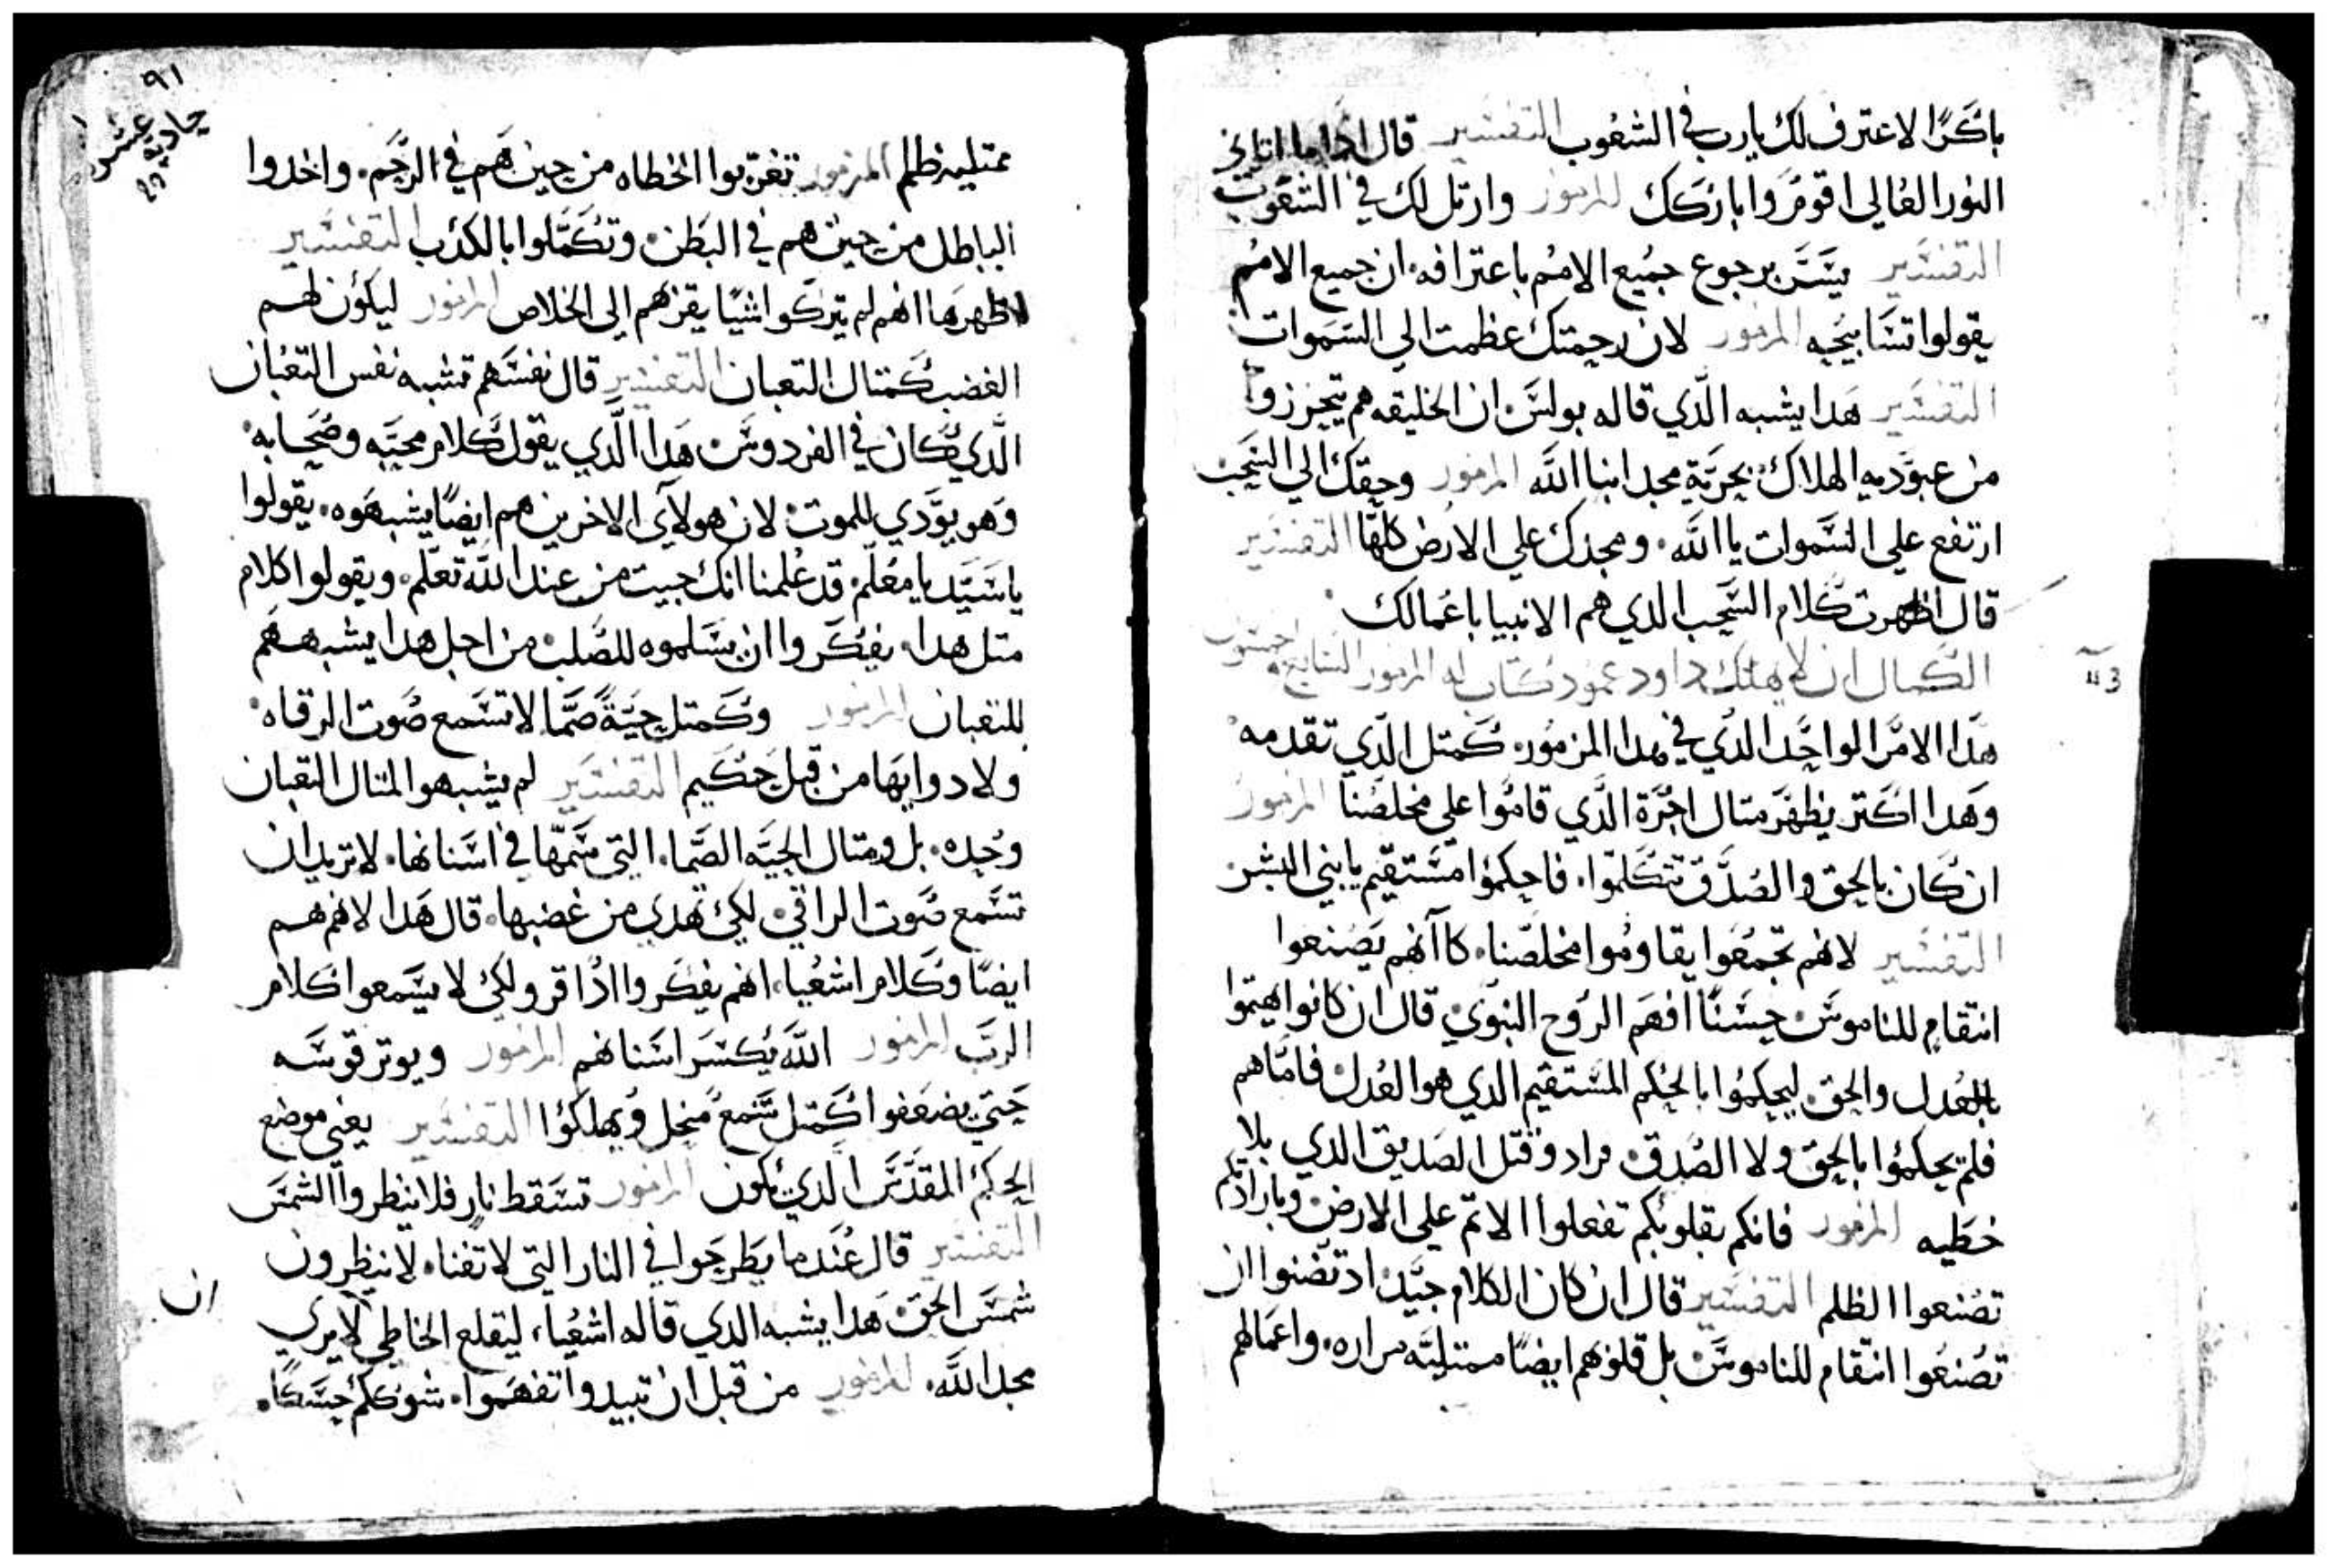 باكرًا لاعترف لك يارب في الشعوب التفسير قال اذا ما اتاني
النور العالي اقوم وابارك المزمور وارتل لك في الشعوب
التفسير يبشر برجوع جميع الامم باعترافه ان جميع الامم
يقولوا تسابيحه المزمور لان رحمتك عظمت الي السموات
التفسير هدا يشبه الدي قاله بولس ان الخليقه هم يتحرزوا
من عبوديه الهلاك بحرية مجد ابنا الله المزمور وحقك الي السحب
ارتفع علي السموات يا الله ومجدك علي الارض كلها التفسير
قال اظهرت كلام السحب الدي هم الانبيا باعمالك
الكمال ان لا هلك داود عمود كتاب له المزمور السابع وخمسون
هدا الامر الواحد الدي في هدا المزمور كمتل الدي تقدمه
وهدا اكتر يظهر متال اجرة الدي قاموا علي مخلصنا المزمور
ان كان بالحق والصدق تتكلموا فاحكموا مستقيم يا بني البشر
التفسير لانهم تجمعوا يقاوموا مخلصنا كاانهم يصنعوا
انتقام للناموس حسنًا افهم الروح النبوي قال ان كانوا يهتموا
بالعدل والحق ليحكموا بالحكم المستقيم الدي هو العدل فاما هم
فلم يحكموا بالحق ولا الصدق وقتل الصديق الدي بلا
خطيه المزمور فانكم بقلوبكم تفعلوا الاتم علي الارض
تصنعوا الظلم التفسير قال ان كان الكلام جيد ان
تصنعوا انتقام للناموس بل قلوبهم ايضًا ممتليه مراره واعمالهم
٩١
حادية عشر
ممتليه ظلم المزمور تغربوا الخطاه من حين هم في الرحم واخدوا
الباطل من حين هم في البطن وتكملوا بالكدب التفسير
اظهر هاانهم لم يتركوا شيًا يقربهم الي الخلاص المزمور ليكون لهم
الغضب كمتال التعبان التفسير قال نفسهم تشبه نفس التعبان
الدي كان في الفردوس هدا الدي يقول كلام محبه وصحابه
وهو يودي للموت لان هولاي الاخرين هم ايضًا يشبهوه يقولوا
يا سيد يا معلم قد علمنا انك جيت من عند الله تعلم ويقولوا كلام
متل هدا يفكروا ان يسلموه للصلب من اجل هدا يشبههم
للتعبان المزمور وكمتل حيةً صما لا تسمع صوت الرقاه
ولا دوايها من قبل حكيم التفسير لم يشبهوا المتال التعبان
وحده بل ومتال الحيه الصما التي سمها في اسنانها لا تريد ان
تسمع صوت الراقي لكي تهدي من غضبها قال هدا لانهم هم
ايضًا وكلام اشعيا انهم يفكروا ادا قرو لكي لا يسمعوا كلام
الرب المزمور الله يكسر اسنانهم المزمور ويوتر قوسه
حتي يضعفوا كمتل شمع منحل ويهلكوا التفسير يعني موضع
الحكم المقدس الدي يكون المزمور تسقط نار فلا ينظروا الشمس
التفسير قال عندما يطرحوا في النار التي لا تفنا لا ينظرون
شمس الحق هدا يشبه الدي قاله اشعيا ليقلع الخاطي لا يري
مجد الله المزمور من قبل ان تبيدوا تفهموا شوككم حسكًا
ان